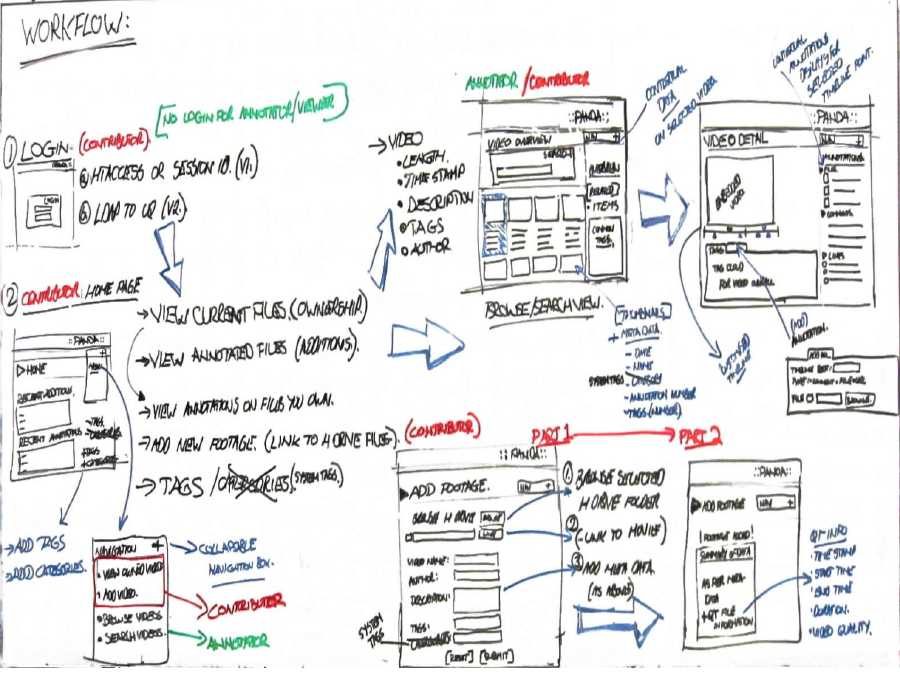 WORKFLOW:
[NO LOGIN FOR ANNOTATOR/VIEWER]
① LOGIN. (CONTRIBUTOR).
LOGIN
ⓐ HTACCESS OR SESSION ID. (V1.)
ⓑ LDAP TO UQ (V2.)
② CONTRIBUTOR: HOME PAGE
::PANDA::
▷HOME
NAV +
RECENT ADDITIONS.
RECENT ANNOTATIONS
-TAGS
+CATEGORIES
→ADD TAGS
→ADD CATEGORIES.
→VIEW CURRENT FILES.(OWNERSHIP.)
→VIEW ANNOTATED FILES (ADDITIONS).
→VIEW ANNOTATIONS ON FILES YOU OWN.
→ADD NEW FOOTAGE. (LINK TO H DRIVE FILES).
→TAGS /CATEGORIES. (SYSTEM TAGS)
NAVIGATION +
• VIEW OWNED VIDEO
• ADD VIDEO.
• BROWSE VIDEOS
• SEARCH VIDEOS.
→COLLAPABLE
NAVIGATION BOX.
→CONTRIBUTER
→ANNOTATOR
→VIDEO
• LENGTH.
• TIME STAMP
• DESCRIPTION
• TAGS
• AUTHOR
ANNOTATOR /CONTRIBUTOR
::PANDA::
VIDEO OVERVIEW
NAV +
SEARCH
[RELATED]
• ITEMS
COMMON
TAGS.
BROWSE/SEARCH VIEW.
CONTEXTUAL
DATA
ON SELECTED VIDEO
[THUMBNAILS]
+ META DATA.
- DATE
- NAME
SYSTEM TAGS - CATEGORY
- ANNOTATION NUMBER
- TAGS (NUMBER).
ANNOTATIONS
DISPLAY FOR
SELECTED
TIMELINE POINT.
::PANDA::
VIDEO DETAIL
NAV +
EMBEDDED
VIDEO
TAGS
TAG CLOUD
FOR VIDEO OVERALL
ANNOTATIONS
▷FILE
▷COMMENTS
▷LINKS
TIMELINE
(ADD)
ANNOTATION.
FILE
BROWSE
(CONTRIBUTOR)
::PANDA::
▶ADD FOOTAGE.
NAV +
BROWSE H DRIVE
LINK
VIDEO NAME:
AUTHOR:
DESCRIPTION:
TAGS:
CATEGORIES:
SYSTEM
TAGS
[RESET] [SUBMIT]
PART 1 → PART 2
① BROWSE SELECTED
H DRIVE FOLDER
②
(-LINK TO MOVIE)
③
ADD META DATA
(AS ABOVE)
::PANDA::
▶ADD FOOTAGE
NAV +
[FOOTAGE ADDED]
SUMMARY OF DATA
AS PER META-
DATA
+QT FILE
INFORMATION
QT INFO
• TIME STAMP
• START TIME
• END TIME
• DURATION.
• VIDEO QUALITY.